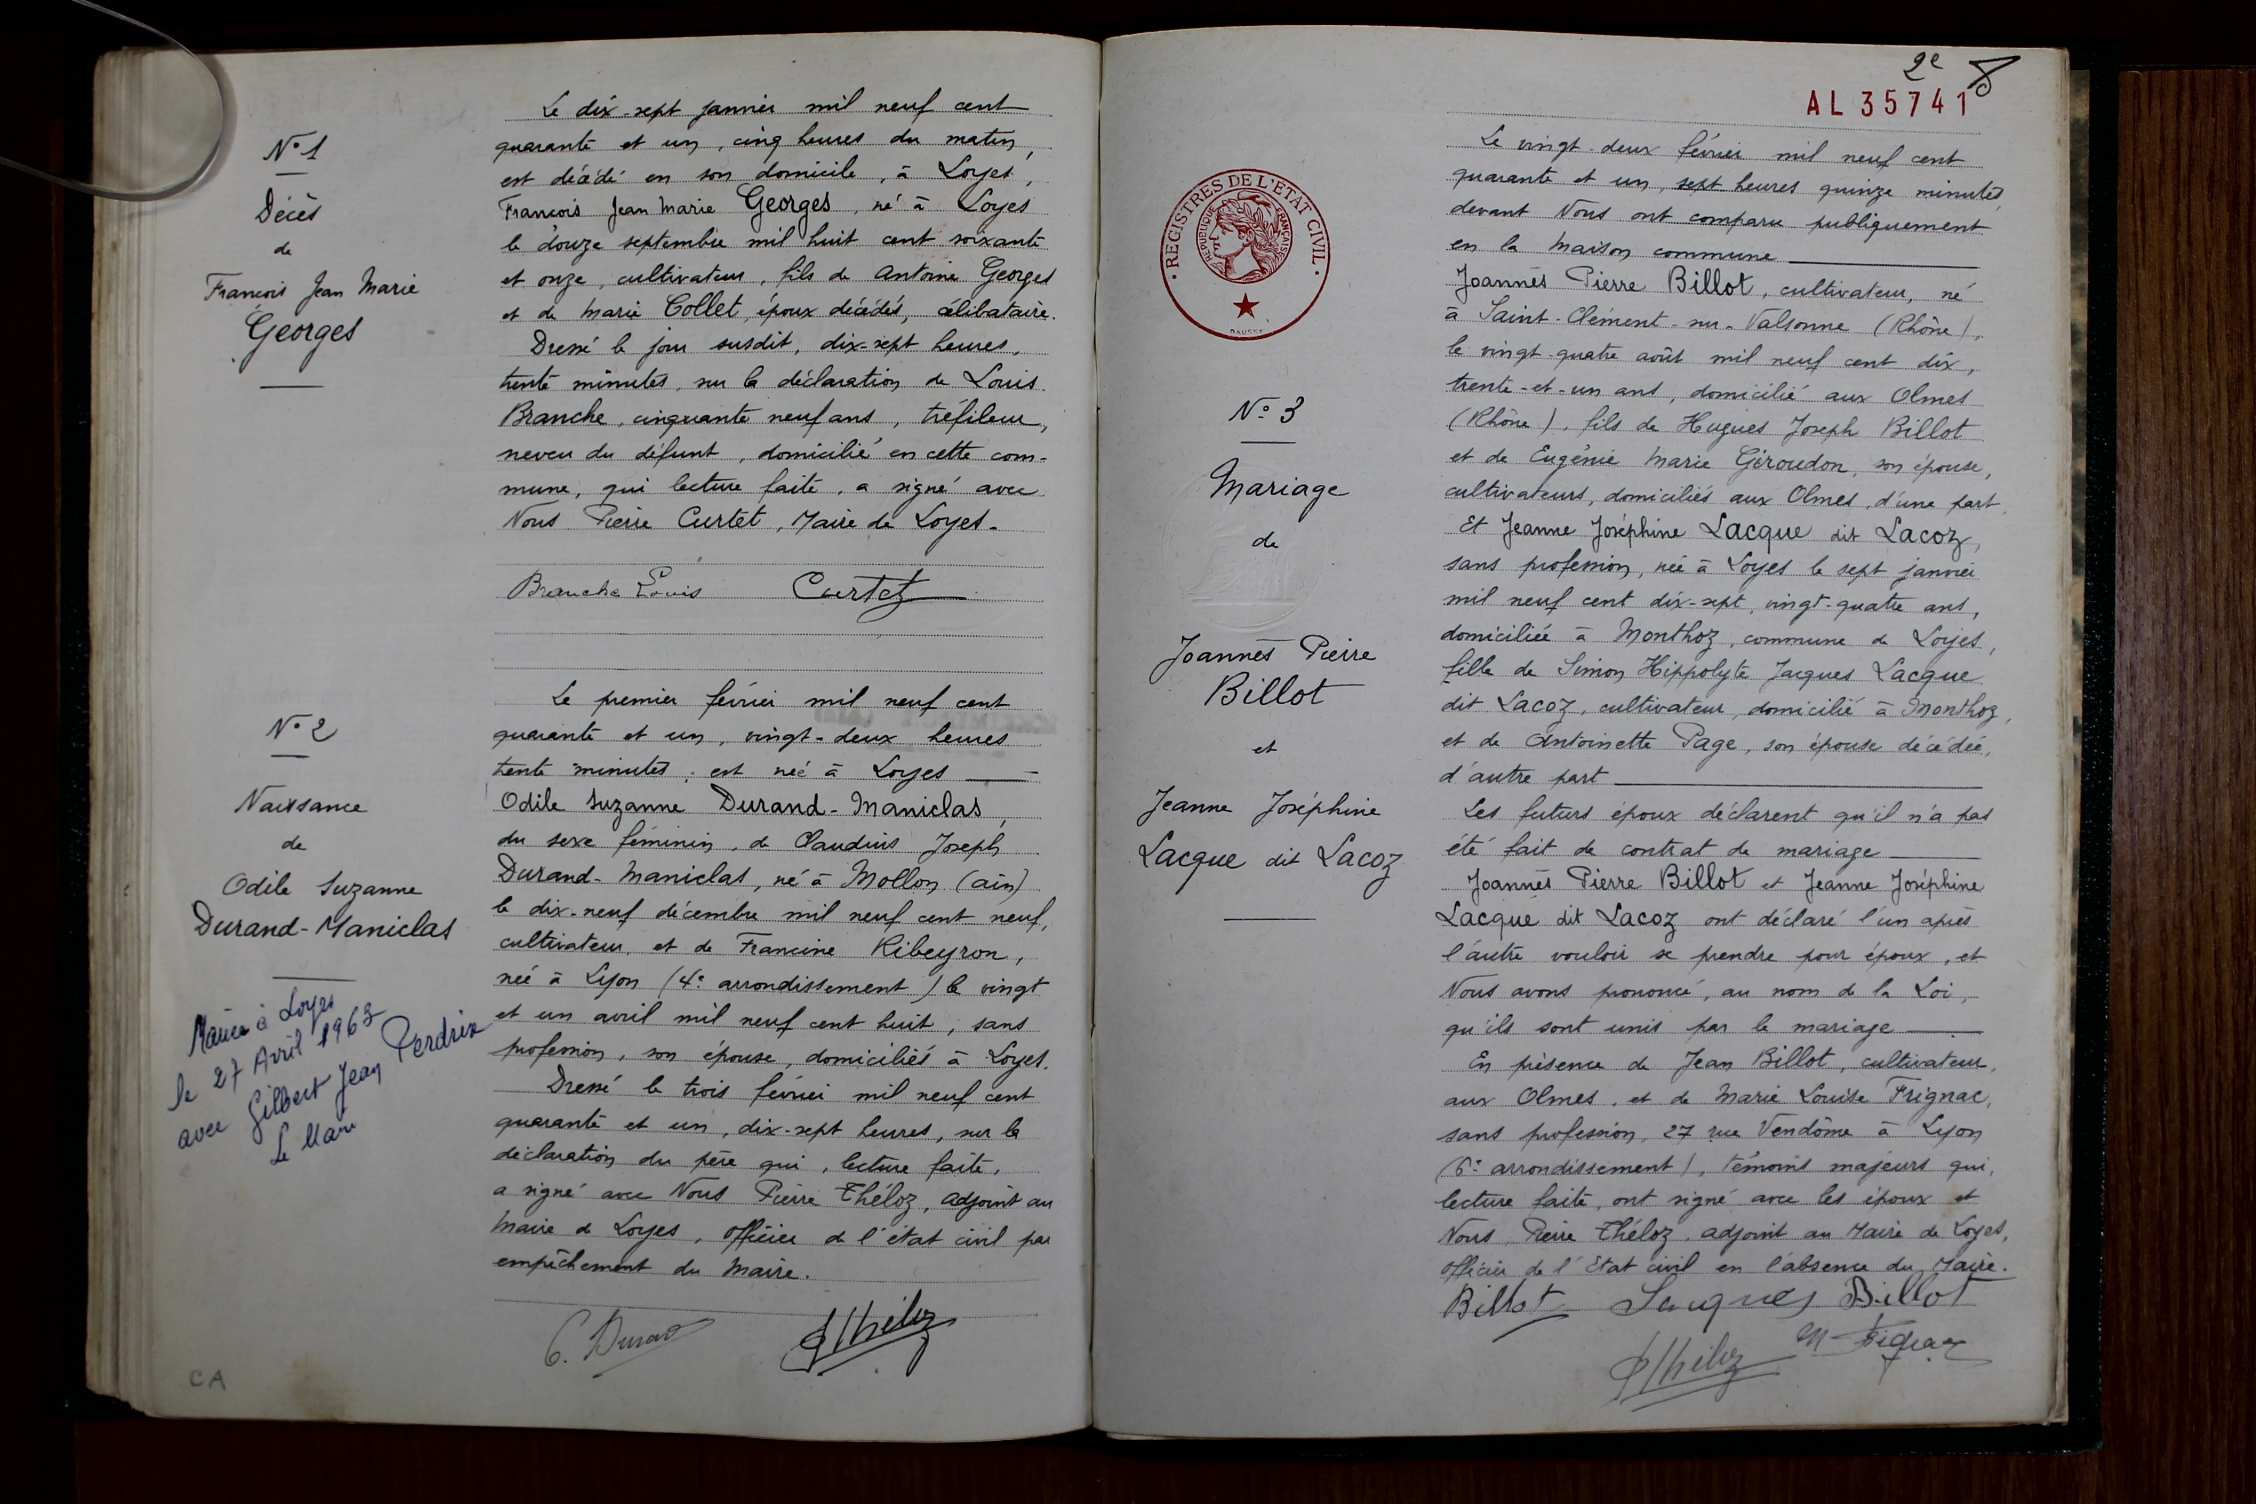 N° 1
Décès
de
François Jean Marie
Georges
Le dix-sept janvier mil neuf cent
quarante et un, cinq heures du matin,
est décédé en son domicile, à Loyes,
François Jean Marie Georges, né à Loyes
le douze septembre mil huit cent soixante
et onze, cultivateur, fils de Antoine Georges
et de Marie Collet, époux décédés, célibataire.
Dressé le jour susdit, dix-sept heures,
trente minutes, sur la déclaration de Louis
Branche, cinquante neuf ans, tréfileur,
neveu du défunt, domicilié en cette com-
mune, qui lecture faite, a signé avec
Nous Pierre Curtet, Maire de Loyes.
Branche Louis Curtet
N° 2
Naissance
de
Odile Suzanne
Durand-Maniclas
Mariée à Loyes
le 27 Avril 1963
avec Gilbert Jean Perdrix
Le Maire
Le premier février mil neuf cent
quarante et un, vingt-deux heures
trente minutes, est née à Loyes
Odile Suzanne Durand-Maniclas,
du sexe féminin, de Claudius Joseph
Durand-Maniclas, né à Mollon (Ain)
le dix-neuf décembre mil neuf cent neuf,
cultivateur, et de Francine Ribeyron,
née à Lyon (4e arrondissement) le vingt
et un avril mil neuf cent huit, sans
profession, son épouse, domiciliés à Loyes.
Dressé le trois février mil neuf cent
quarante et un, dix-sept heures, sur la
déclaration du père qui, lecture faite,
a signé avec Nous Pierre Théloz, adjoint au
Maire de Loyes, officier de l'état civil par
empêchement du Maire.
C. Durand PThéloz
CA
2e 8
AL 35741
REGISTRES DE L'ETAT CIVIL
REPUBLIQUE FRANÇAISE
N° 3
Mariage
de
Joannès Pierre
Billot
et
Jeanne Joséphine
Lacque dit Lacoz
Le vingt-deux février mil neuf cent
quarante et un, sept heures quinze minutes,
devant Nous ont comparu publiquement
en la maison commune
Joannès Pierre Billot, cultivateur, né
à Saint-Clément-sur-Valsonne (Rhône),
le vingt-quatre août mil neuf cent dix,
trente-et-un ans, domicilié aux Olmes
(Rhône), fils de Hugues Joseph Billot
et de Eugénie Marie Giroudon, son épouse,
cultivateurs, domiciliés aux Olmes, d'une part
Et Jeanne Joséphine Lacque dit Lacoz,
sans profession, née à Loyes le sept janvier
mil neuf cent dix-sept, vingt-quatre ans,
domiciliée à Monthoz, commune de Loyes,
fille de Simon Hippolyte Jacques Lacque
dit Lacoz, cultivateur, domicilié à Monthoz,
et de Antoinette Page, son épouse décédée,
d'autre part
Les futurs époux déclarent qu'il n'a pas
été fait de contrat de mariage
Joannès Pierre Billot et Jeanne Joséphine
Lacque dit Lacoz ont déclaré l'un après
l'autre vouloir se prendre pour époux, et
Nous avons prononcé, au nom de la Loi,
qu'ils sont unis par le mariage
En présence de Jean Billot, cultivateur,
aux Olmes, et de Marie Louise Frignac,
sans profession, 27 rue Vendôme à Lyon
(6e arrondissement), témoins majeurs qui,
lecture faite, ont signé avec les époux et
Nous, Pierre Théloz, adjoint au Maire de Loyes,
officier de l'Etat civil en l'absence du Maire.
Billot Lacque J Billot
PThéloz M Frignac